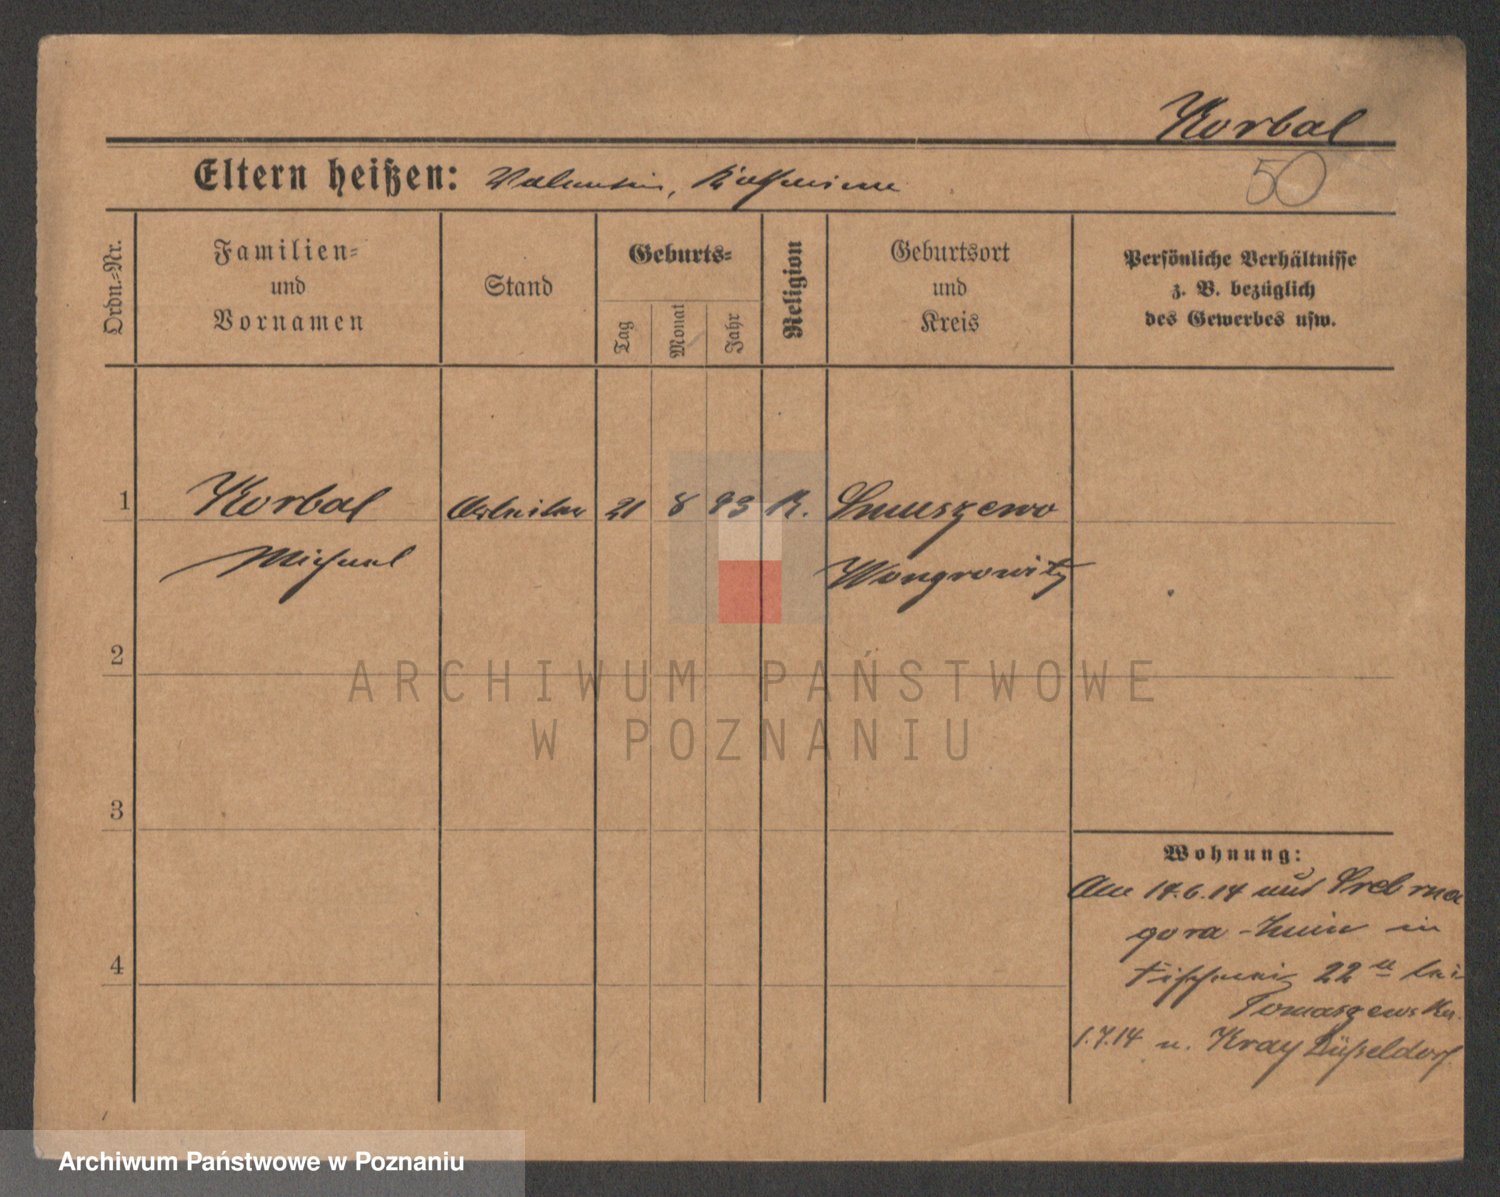 Korbal
50
Eltern heißen: Valentin, Katharina
Ordn.=Nr.
Familien=
und
Vornamen
Stand
Geburts=
Tag
Monat
Jahr
Religion
Geburtsort
und
Kreis
Persönliche Verhältnisse
z. B. bezüglich
des Gewerbes usw.
1
Korbal
Arbeiter
21
8
93
K.
Smuszewo
Michael
Wongrowitz
2
3
4
Wohnung:
14.6.14 aus Srebrna
gora - Znin in
22 bei
Tomaszewski
1.7.14 n. Kray Düsseldorf
ARCHIWUM PAŃSTWOWE
W POZNANIU
Archiwum Państwowe w Poznaniu